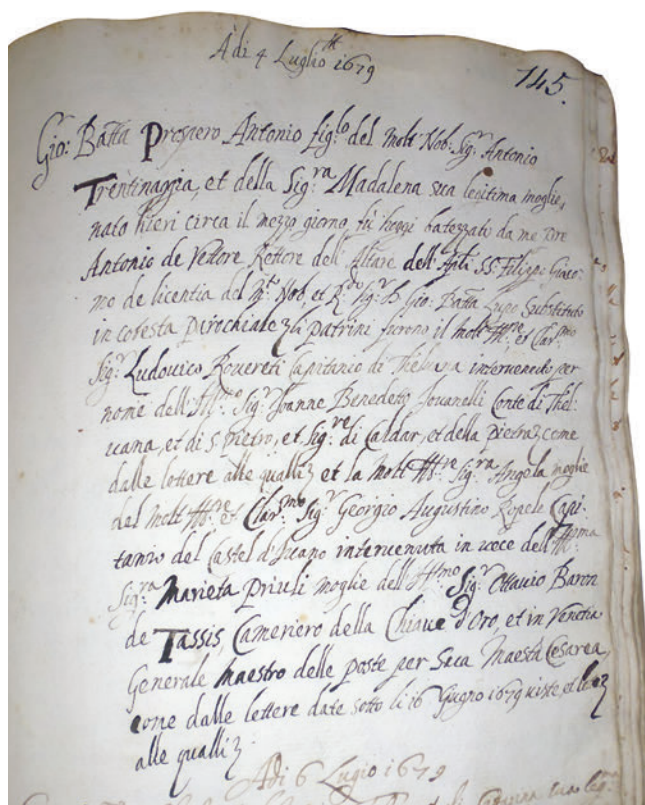 Adi 4 Luglio 1679
145.
Gio: Batta Prospero Antonio fig:lo del Molt Nob: Sig:r Antonio
Trentinaggia, et della Sig:ra Madalena sua legitima moglie,
nato hieri circa il mezzo giorno, fù hoggi batezzato da me Pre
Antonio de Vettore Rettore dell'Altare dell'Apli SS: Filippo Giaco:
mo de licentia del M:to Nob, et R:do Sig:r D. Gio: Batta Lupo Substituto
in cotesta Parochiale li Patrini furono il molt Ill:re et Clar:mo
Sig:r Ludovico Rovereti Capitanio di Theluana intervenuto per
nome dell'Ill:mo Sig:r Joanne Benedetto Jovanelli Conte di Thel:
uana, et di S. Pietro, et Sig:re di Caldar, et della Pietra, come
dalle lettere alle qualli et la Molt Ill:re Sig:ra Angela moglie
del Molt Ill:re et Clar:mo Sig:r Georgio Augustino Ropele Capi:
tanio del Castel d'Ivano intervenuta in voce dell'Ill:ma
Sig:ra Marieta Priuli moglie dell'Ill:mo Sig:r Ottavio Baron
de Tassis, Cameriero della Chiave d'Oro, et in Venetia
Generale Maestro delle poste per Saca Maestà Cesarea,
come dalle lettere date sotto li 16 Giugno 1679 viste et
alle qualli
Adi 6 Lugio 1679